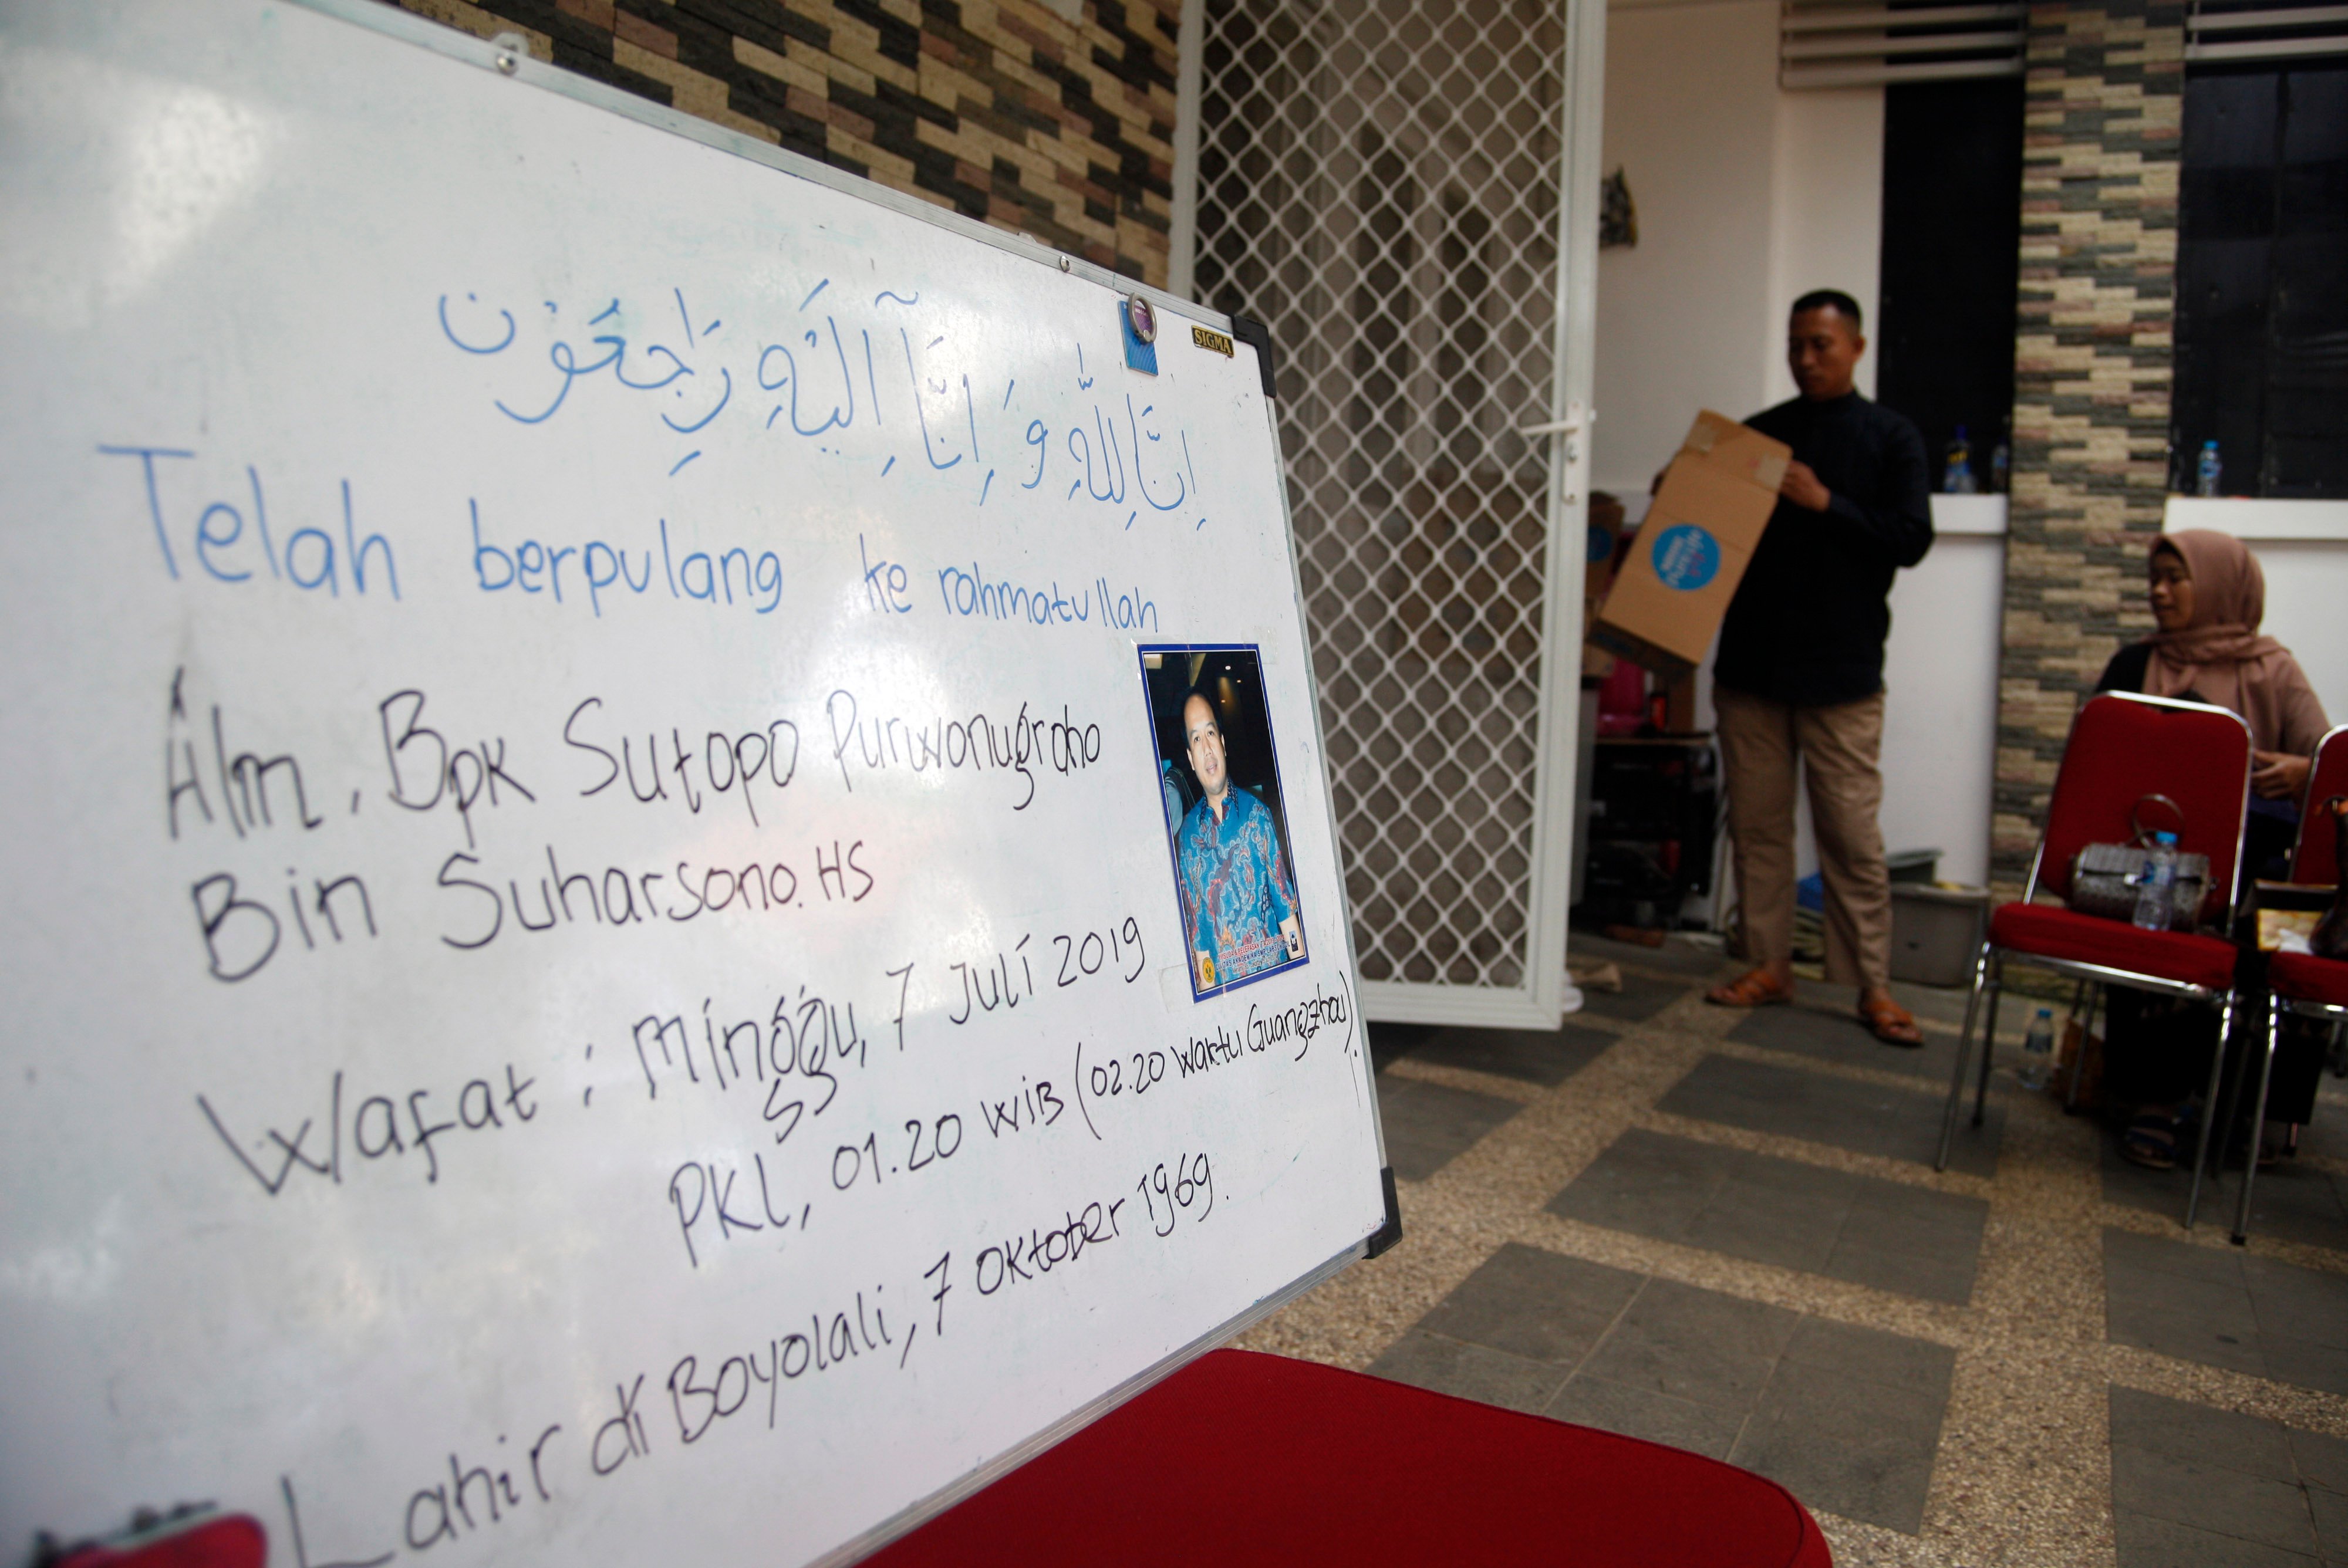 SIGMA
اِنَّا لِلّٰهِ وَ اِنَّآ اِلَيْهِ رَاجِعُوْن
Telah berpulang ke rahmatullah
Alm. Bpk Sutopo Purwonugroho
Bin Suharsono. HS
Wafat : Minggu, 7 Juli 2019
53
PKL, 01.20 WIB (02.20 Waktu Guangzhou).
Lahir di Boyolali, 7 Oktober 1969.